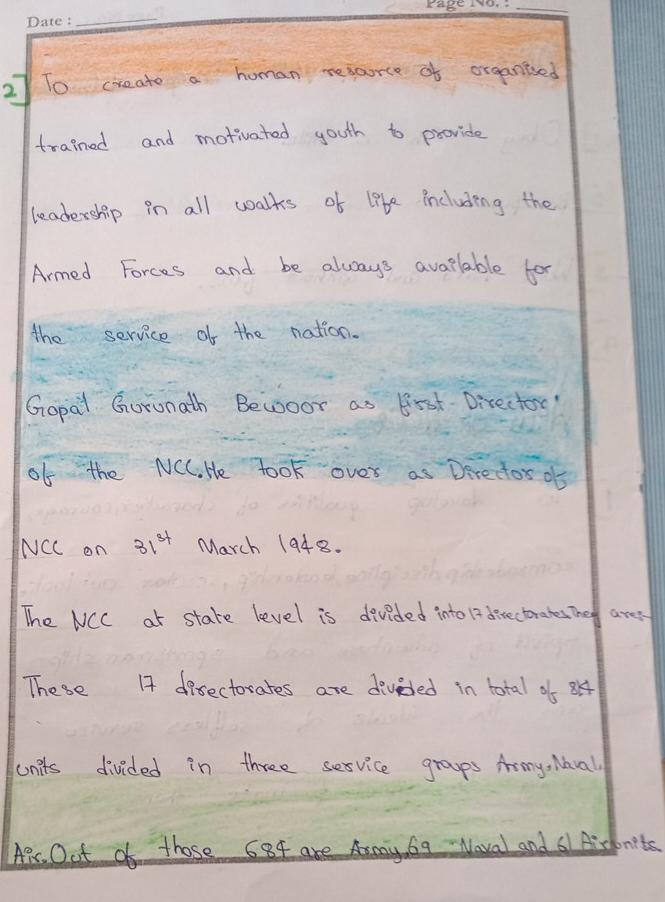 Page No. :
Date :
2] To create a human resource of organised
trained and motivated youth to provide
leadership in all walks of life including the
Armed Forces and be always available for
the service of the nation.
Gopal Gurunath Bewoor as first Director
of the NCC. He took over as Director of
NCC on 31st March 1948.
The NCC at state level is divided into 17 directorates They are:-
These 17 directorates are divided in total of 814
units divided in three service groups Army, Naval,
Air. Out of those 684 are Army, 69 Naval and 61 Air units